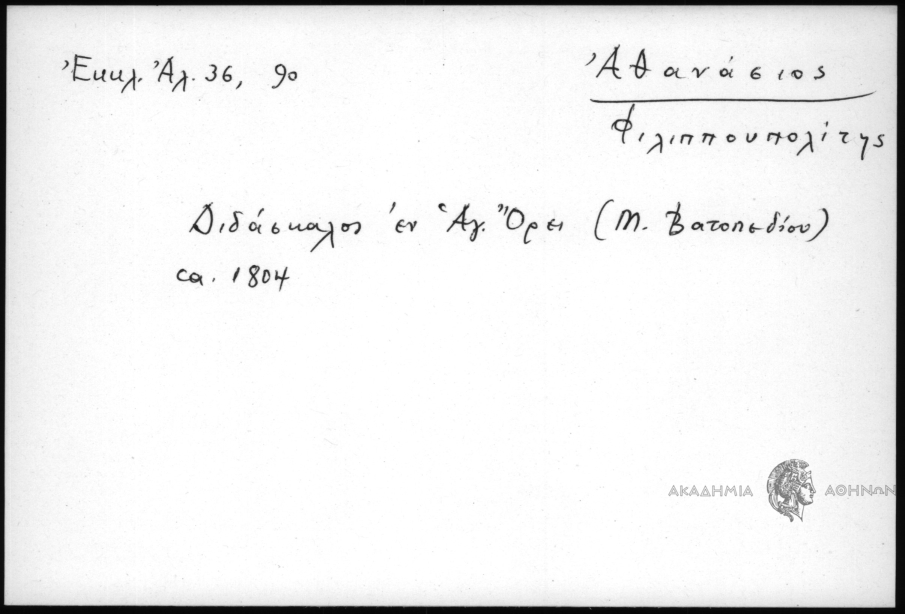 Ἐκκλ. Ἀλ. 36, 90
Ἀθανάσιος
Φιλιππουπολίτης
Διδάσκαλος ἐν Ἁγ. Ὄρει (Μ. Βατοπεδίου)
ca. 1804
ΑΚΑΔΗΜΙΑ ΑΘΗΝΩΝ